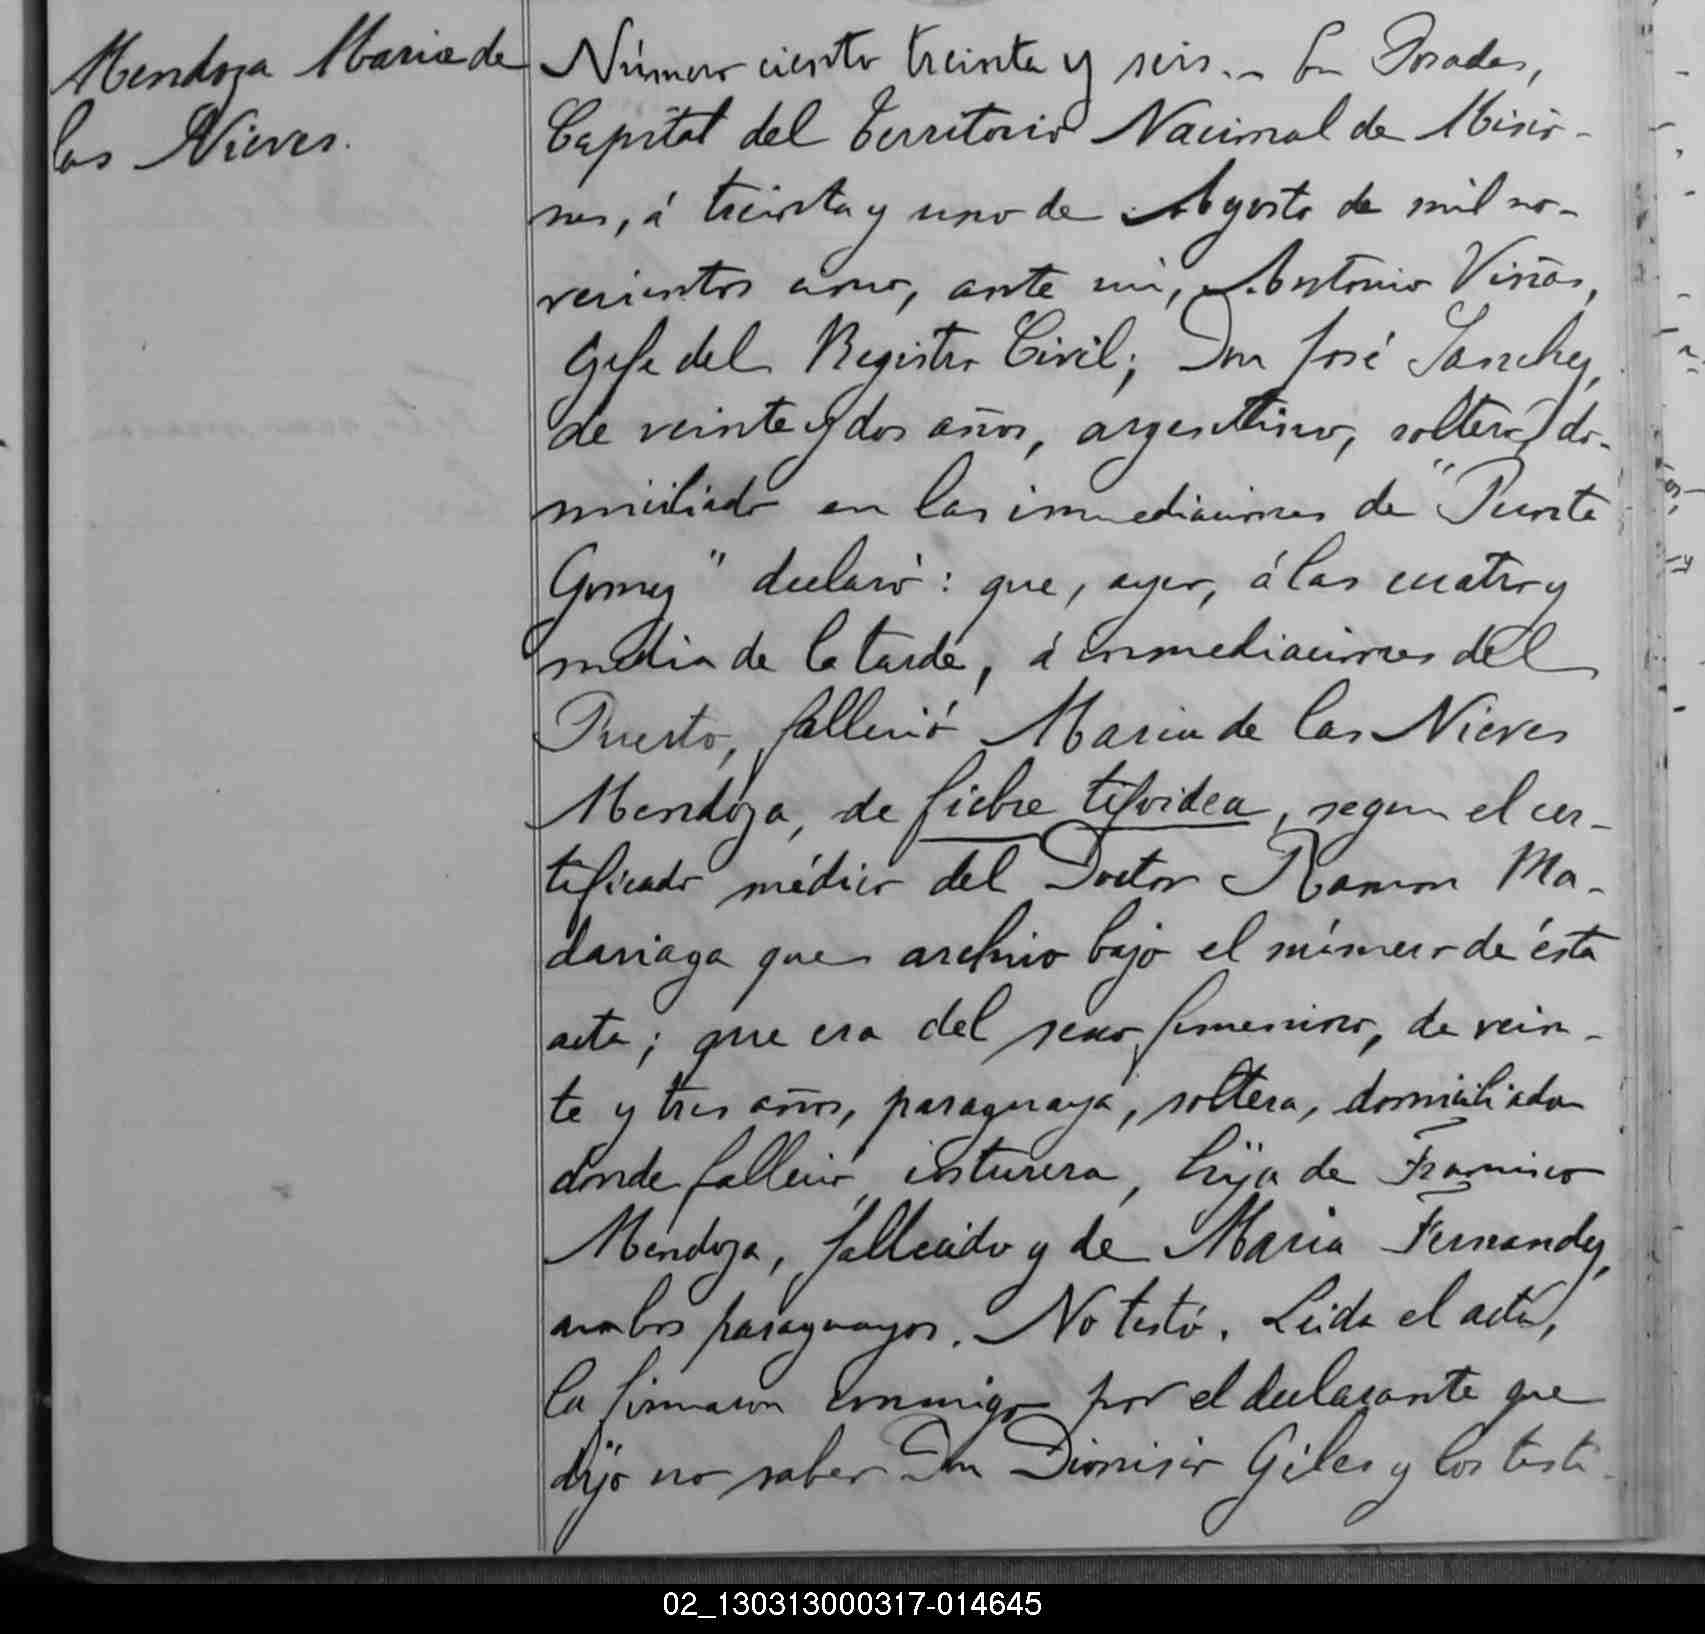 Mendoza Maria de
las Nieves.
Número ciento treinta y seis.- En Posadas,
Capital del Territorio Nacional de Misio-
nes, á treinta y uno de Agosto de mil no-
vecientos uno, ante mi, Antonio Viñas,
Gefe del Registro Civil; Don José Sanchez,
de veinte y dos años, argentino, soltero, do-
miciliado en las inmediaciones de "Punta
Gomez" declaró: que, ayer, á las cuatro y
media de la tarde, á inmediaciones del
Puerto, falleció Maria de las Nieves
Mendoza, de fiebre tifoidea, segun el cer-
tificado médico del Doctor Ramon Ma-
dariaga que archivo bajo el número de ésta
acta; que era del sexo femenino, de vein-
te y tres años, paraguaya, soltera, domiciliada
donde falleció, costurera, hija de Francisco
Mendoza, fallecido y de Maria Fernandez,
ambos paraguayos. No testó. Leida el acta,
la firmaron conmigo por el declarante que
dijo no saber Don Dionisio Giles y los testi-
02_130313000317-014645